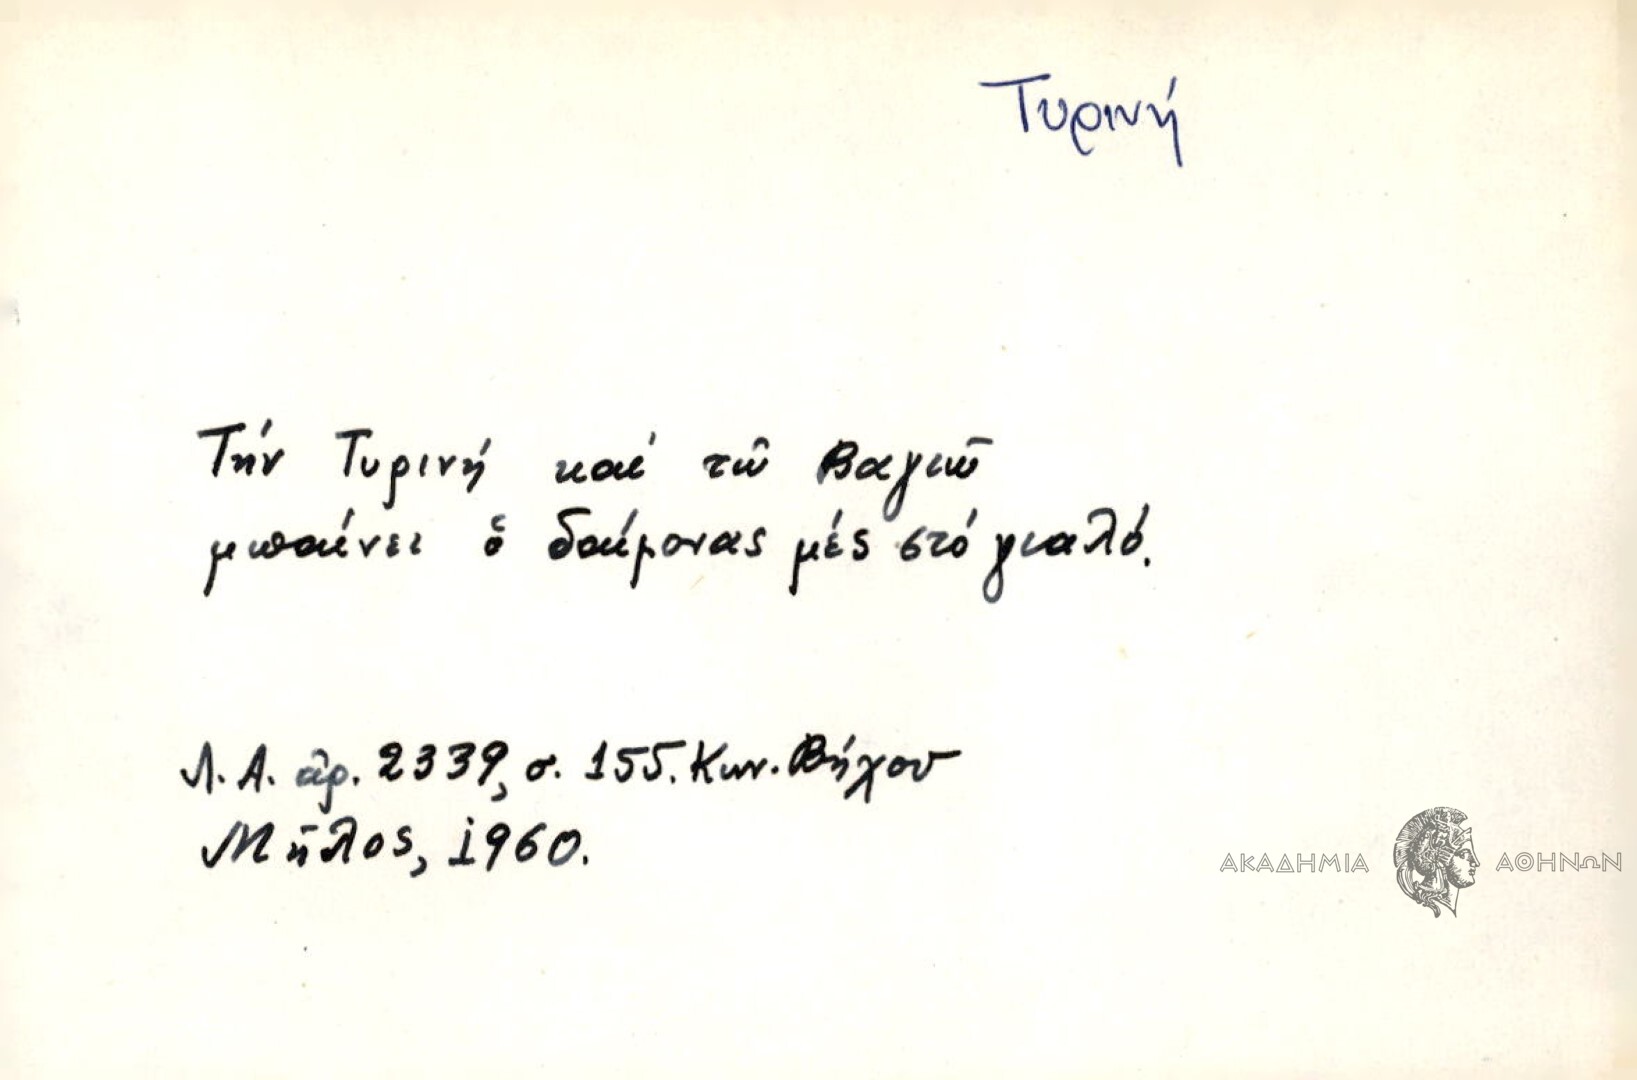 Τυρινή
Τήν Τυρινή καί τῶ Βαγιῶ
μπαίνει ὁ δαίμονας μές στό γιαλό.
Λ. Α. ἀρ. 2339, σ. 155. Κων. Βήχου
Μῆλος, 1960.
ΑΚΑΔΗΜΙΑ ΑΘΗΝΩΝ